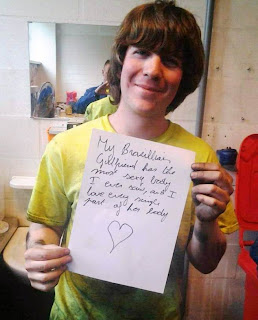 My Brazillian
Girlfriend has the
most sexy body
I ever saw, and I
love every single
part of her body